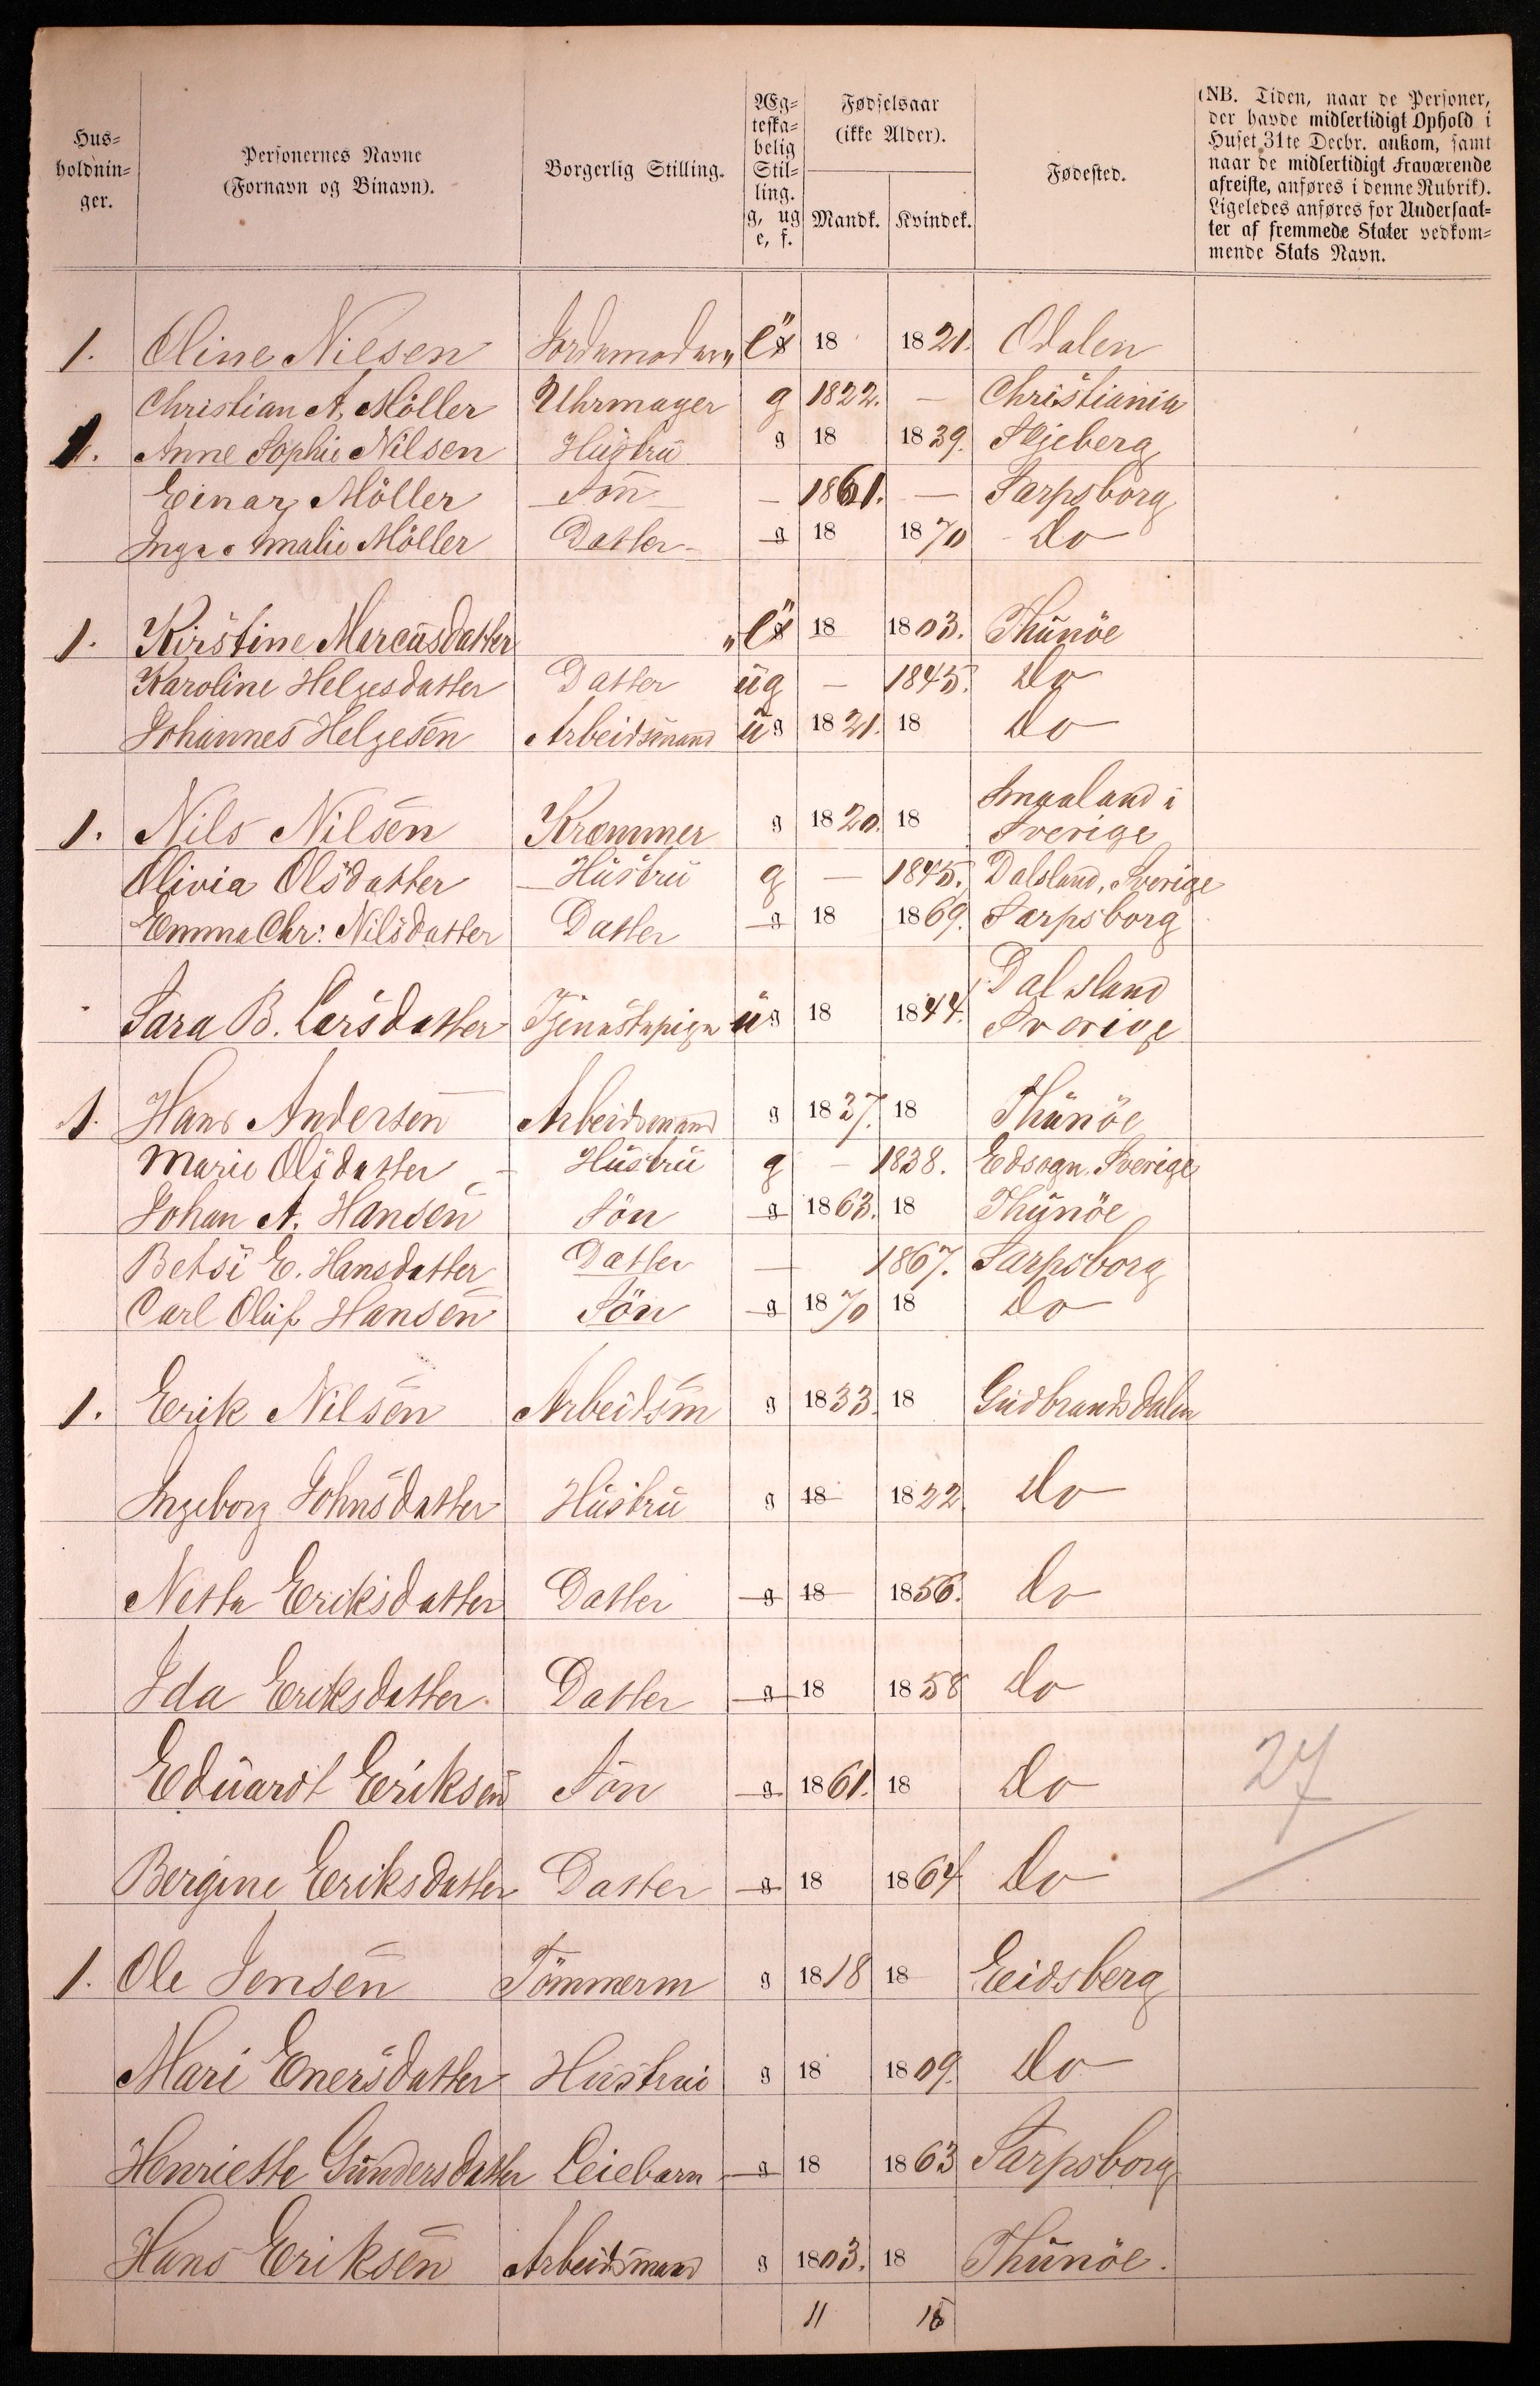 Hus-
holdnin-
ger.
Personernes Navne
(Fornavn og Binavn).
Borgerlig Stilling.
Æg-
teska-
belig
Stil-
ling.
g, ug
e, f.
Fødselsaar
(ikke Alder).
Mandk. Kvindek.
Fødested.
(NB. Tiden, naar de Personer,
der havde midlertidigt Ophold i
Huset 31te Decbr. ankom, samt
naar de midlertidigt Fraværende
afreiste, anføres i denne Rubrik).
Ligeledes anføres for Undersaat-
ter af fremmede Stater vedkom-
mende Stats Navn.
1. Oline Nilsen Jordemoder e 18 1821. Odalen
Christian A. Möller Uhrmager g 1822. — Christiania
1. Anne Sophie Nilsen Hustru g 18 1839. Skjeberg
Einar Möller Sön — 1861. — Sarpsborg
Inga Amalie Möller Datter g 18 1870 do
1. Kirstine Marcusdatter „ e 18 1803. Thunöe
Karoline Helgesdatter Datter ug — 1845. do
Johannes Helgesen Arbeidsmand ug 1821. 18 do
1. Nils Nilsen Kræmmer g 1820. 18 Smaaland i
Sverige
Olivia Olsdatter Hustru g — 1845. Dalsland, Sverige
Emma Chr: Nilsdatter Datter g 18 1869. Sarpsborg
Sara B. Larsdatter Tjenestepige ug 18 1844. Dalsland
Sverige
1. Hans Andersen Arbeidsmand g 1837. 18 Thunöe
Marie Olsdatter Hustru g — 1838. Edsogn. Sverige
Johan A. Hansen Sön g 1863. 18 Thunöe
Betsi E. Hansdatter Datter — 1867. Sarpsborg
Carl Oluf Hansen Sön g 1870 18 do
1. Erik Nilsen Arbeidsm g 1833. 18 Gudbrandsdalen
Ingeborg Johnsdatter Hustru g 18 1822 do
Netta Eriksdatter Datter g 18 1856. do
Ida Eriksdatter. Datter g 18 1858 do
Eduardt Eriksen Sön g 1861. 18 do
27
Bergine Eriksdatter Datter g 18 1864 do
1. Ole Jensen Tömmerm g 1818 18 Eidsberg
Mari Enersdatter Hustru g 18 1809. do
Henriette Gundersdatter Leiebarn g 18 1863 Sarpsborg
Hans Eriksen Arbeidsmand g 1803. 18 Thunöe.
11 16